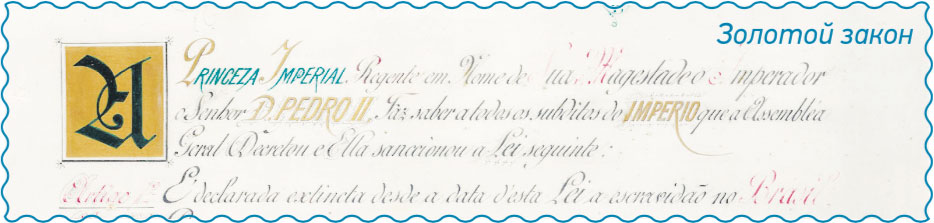 Золотой закон
A PRINCEZA IMPERIAL Regente em Nome de Sua Magestade o Imperador
o Senhor D. PEDRO II, Faz saber a todos os subditos do IMPERIO que a Assembléa
Geral Decretou e Ella sanccionou a Lei seguinte:
Artigo 1º É declarada extincta desde a data d'esta Lei a escravidão no Brazil